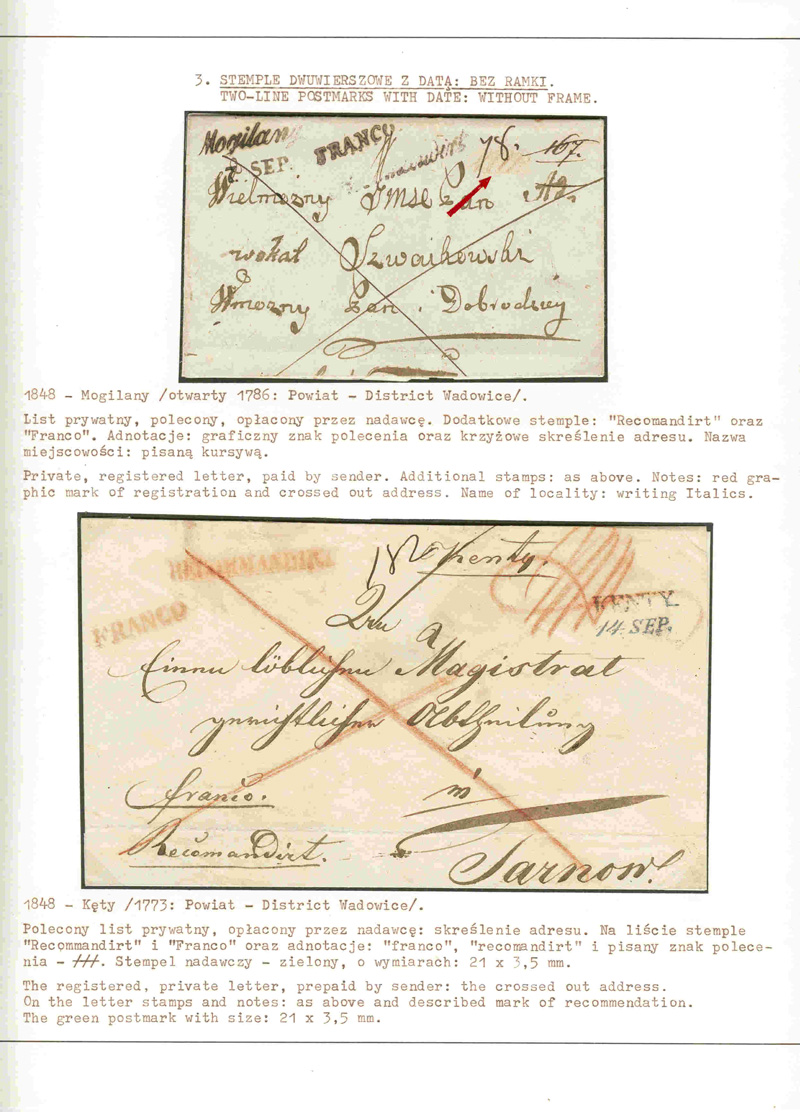 3. STEMPLE DWUWIERSZOWE Z DATĄ: BEZ RAMKI.
TWO-LINE POSTMARKS WITH DATE: WITHOUT FRAME.
Mogilany FRANCO Recomandirt 78. 167.
7. SEP.
Wielmożny JMSC Pan
wokat Szwaikowski
Wmozny Pan i Dobrodziey
1848 - Mogilany /otwarty 1786: Powiat - District Wadowice/.
List prywatny, polecony, opłacony przez nadawcę. Dodatkowe stemple: "Recomandirt" oraz
"Franco". Adnotacje: graficzny znak polecenia oraz krzyżowe skreślenie adresu. Nazwa
miejscowości: pisaną kursywą.
Private, registered letter, paid by sender. Additional stamps: as above. Notes: red gra-
phic mark of registration and crossed out address. Name of locality: writing Italics.
RECOMMANDIRT Kenty.
FRANCO KENTY
14. SEP.
Einen löblichen Magistrat
gerichtlicher Abtheilung
franco. in
Recomandirt. Tarnow.
1848 - Kęty /1773: Powiat - District Wadowice/.
Polecony list prywatny, opłacony przez nadawcę: skreślenie adresu. Na liście stemple
"Recommandirt" i "Franco" oraz adnotacje: "franco", "recomandirt" i pisany znak polece-
nia - ///. Stempel nadawczy - zielony, o wymiarach: 21 x 3,5 mm.
The registered, private letter, prepaid by sender: the crossed out address.
On the letter stamps and notes: as above and described mark of recommendation.
The green postmark with size: 21 x 3,5 mm.